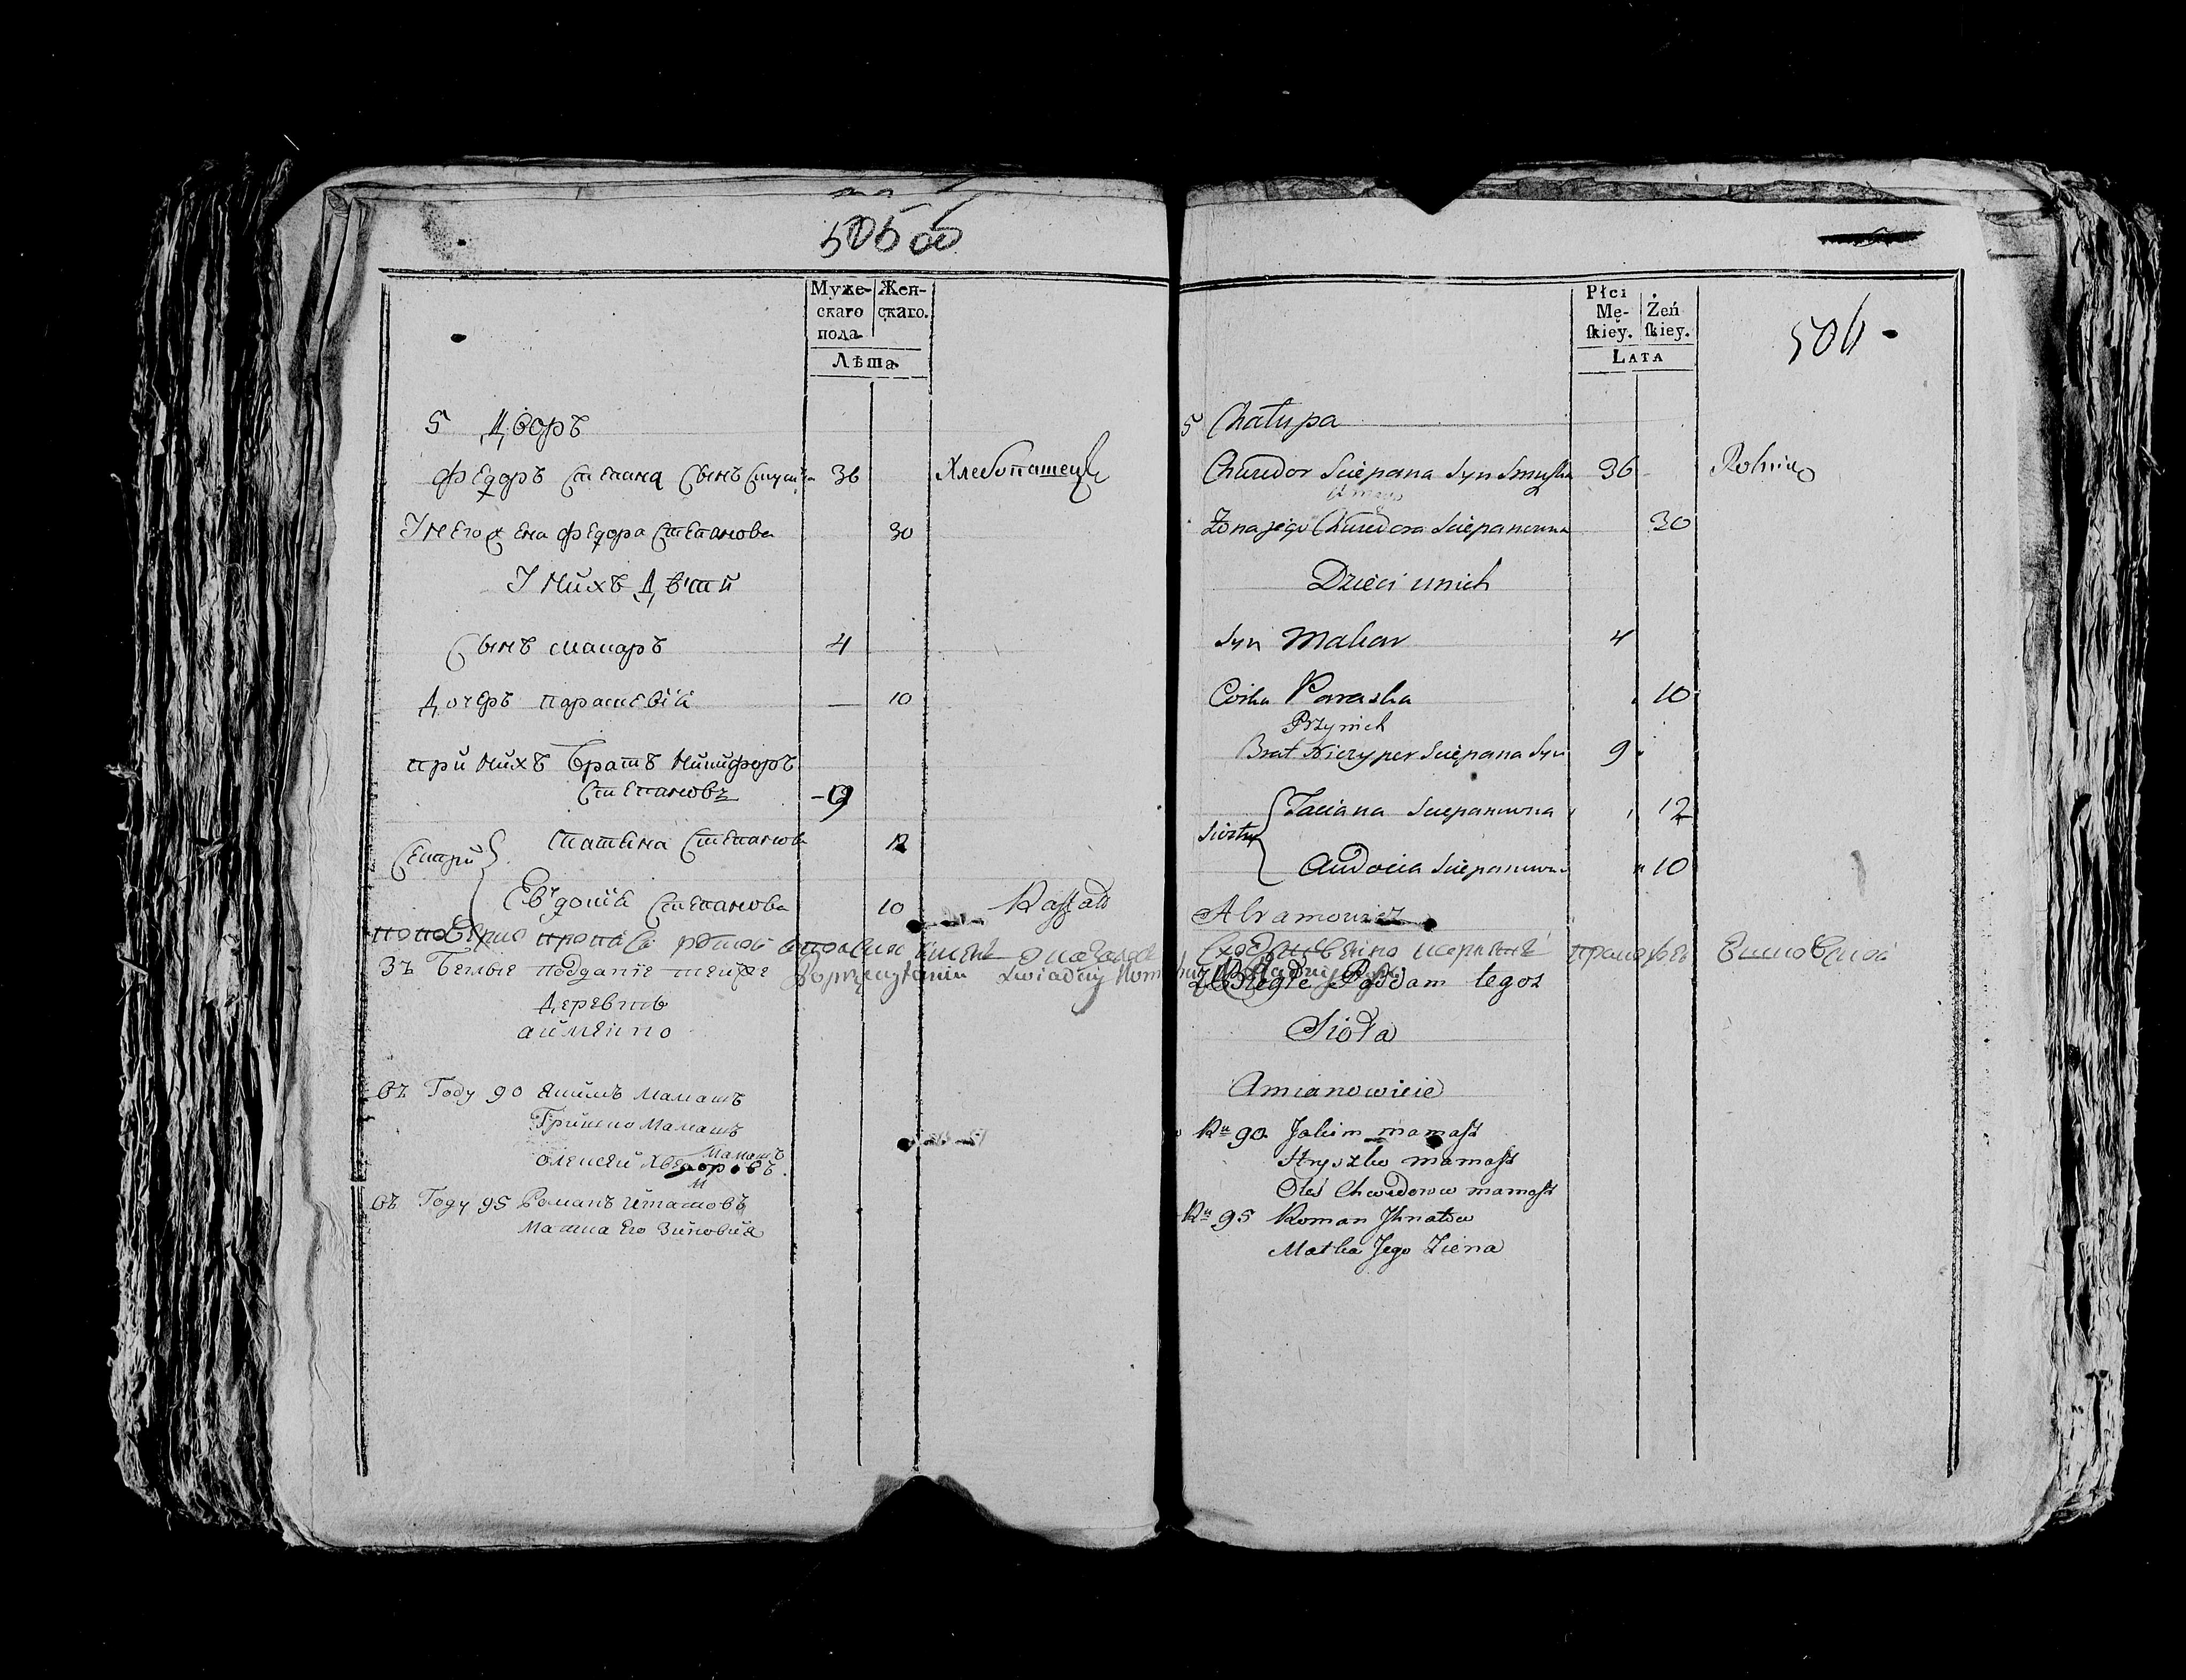 505 об
Муже-
скаго
пола
Жен-
скаго.
Лѣта
5 Дворъ
Федоръ Степана Сынъ 36 Хлебопашец
У него жена Федора Степанова 30
У нихъ Дѣти
Сынъ макаръ 4
Дочеръ парасковія — 10
при нихъ Братъ Никифоръ
Степановъ 9
Сестри Татьяна Степанова 12
Евдокія Степанова 10
Зъ Беглые подданіе тейже
Деревни
аименно
въ Году 90 Якимъ Мамашъ
Гришко Мамашъ
Мамашъ
олексей
въ Году 95 Романъ Игнатовъ
Матка Его Зиновия
Płci
Mę-
ſkiey.
Żeń
ſkiey.
LATA
506
5 Chałupa
Chwedor Sciepana Syn 36 Rolnik
Żona jego Chwedora Sciepanowna 30
Dzieci unich
Syn Makar 4
Corka Paraska 10
Przy nich
Brat Niczyper Sciepana Syn 9
Siostry Taciana Sciepanowna 12
Audocia Sciepanowna 10
Abramowicz
Zbiegłe Poddani tegoż
Sioła
Amianowicie
Ru 90 Jakim mamasz
Hryszko mamasz
Oleś Chwedorow mamasz
Ru 95 Roman Jhnatow
Matka Jego Ziena